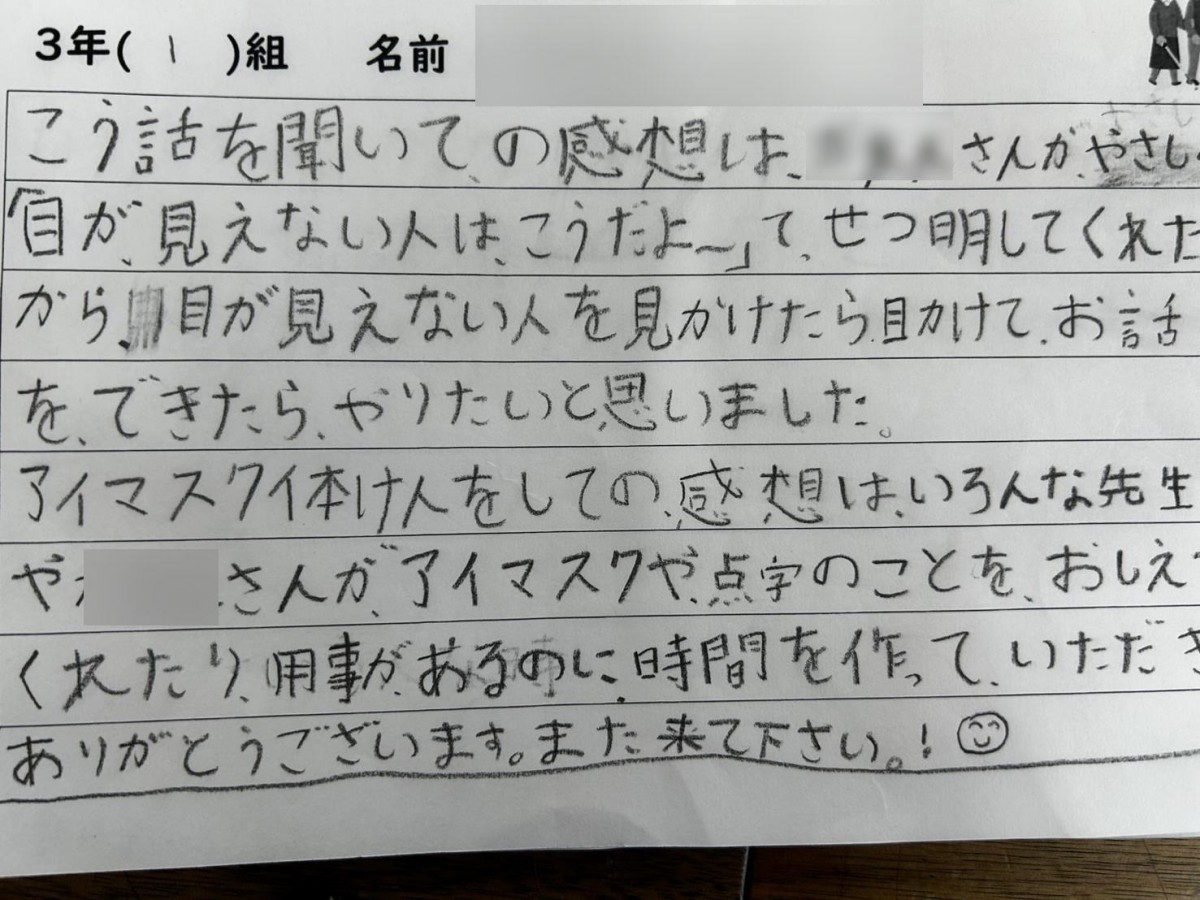 3年( 1 )組 名前
こう話を聞いて、の感想は、 さんが、やさし
「目が、見えない人は、こうだよ〜」て、せつ明してくれた
から、目が見えない人を見かけたら目かけて、お話
を、できたら、やりたいと思いました。
アイマスクイ本け人をしての、感想は、いろんな先生
や さんが、アイマスクや、点字のことを、おしえ
くれたり、用事が、あるのに、時間を作って、いただき
ありがとうございます。また来て下さい。!